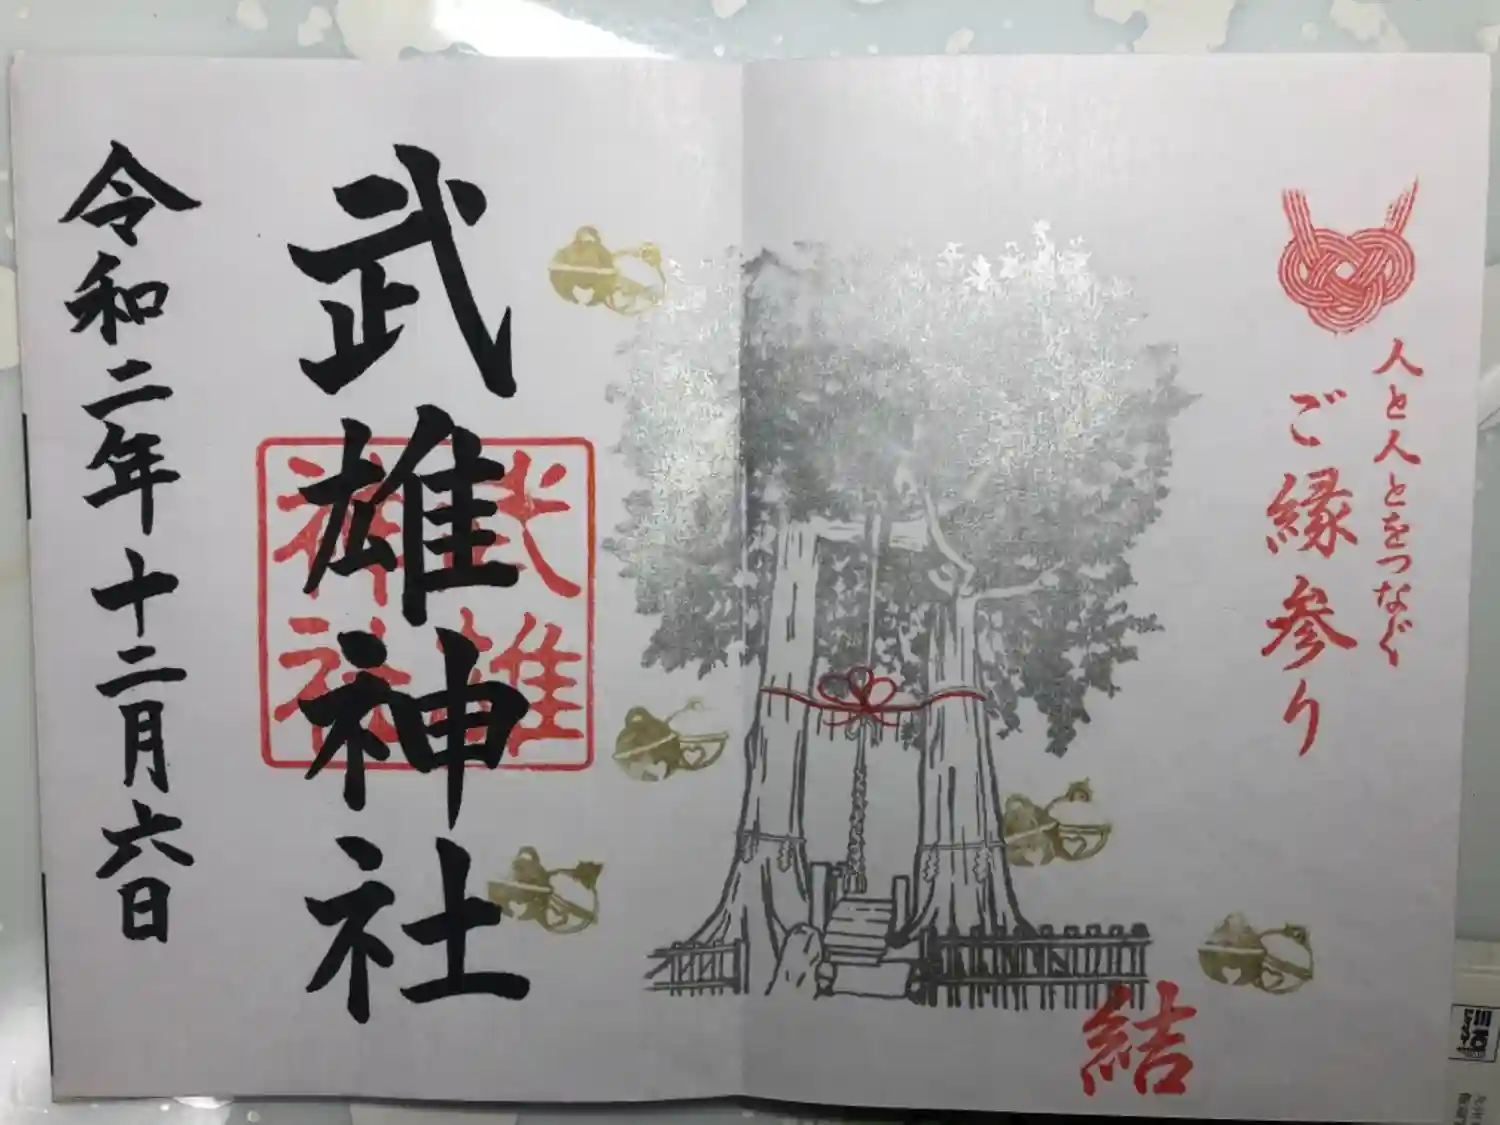 人と人とをつなぐ
ご縁参り
結
武雄神社
武雄
神社
令和二年十二月六日